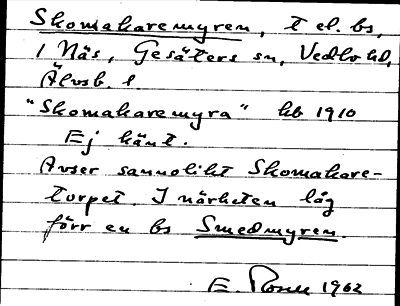 Skomakaremyren, t el. bs,
1 Näs, Gesäters sn, Vedbo hd,
Älvsb. l.
"Skomakaremyra" hb 1910
Ej känt.
Avser sannolikt Skomakare-
torpet. I närheten låg
förr en bs Smedmyren.
E. Rosell 1962